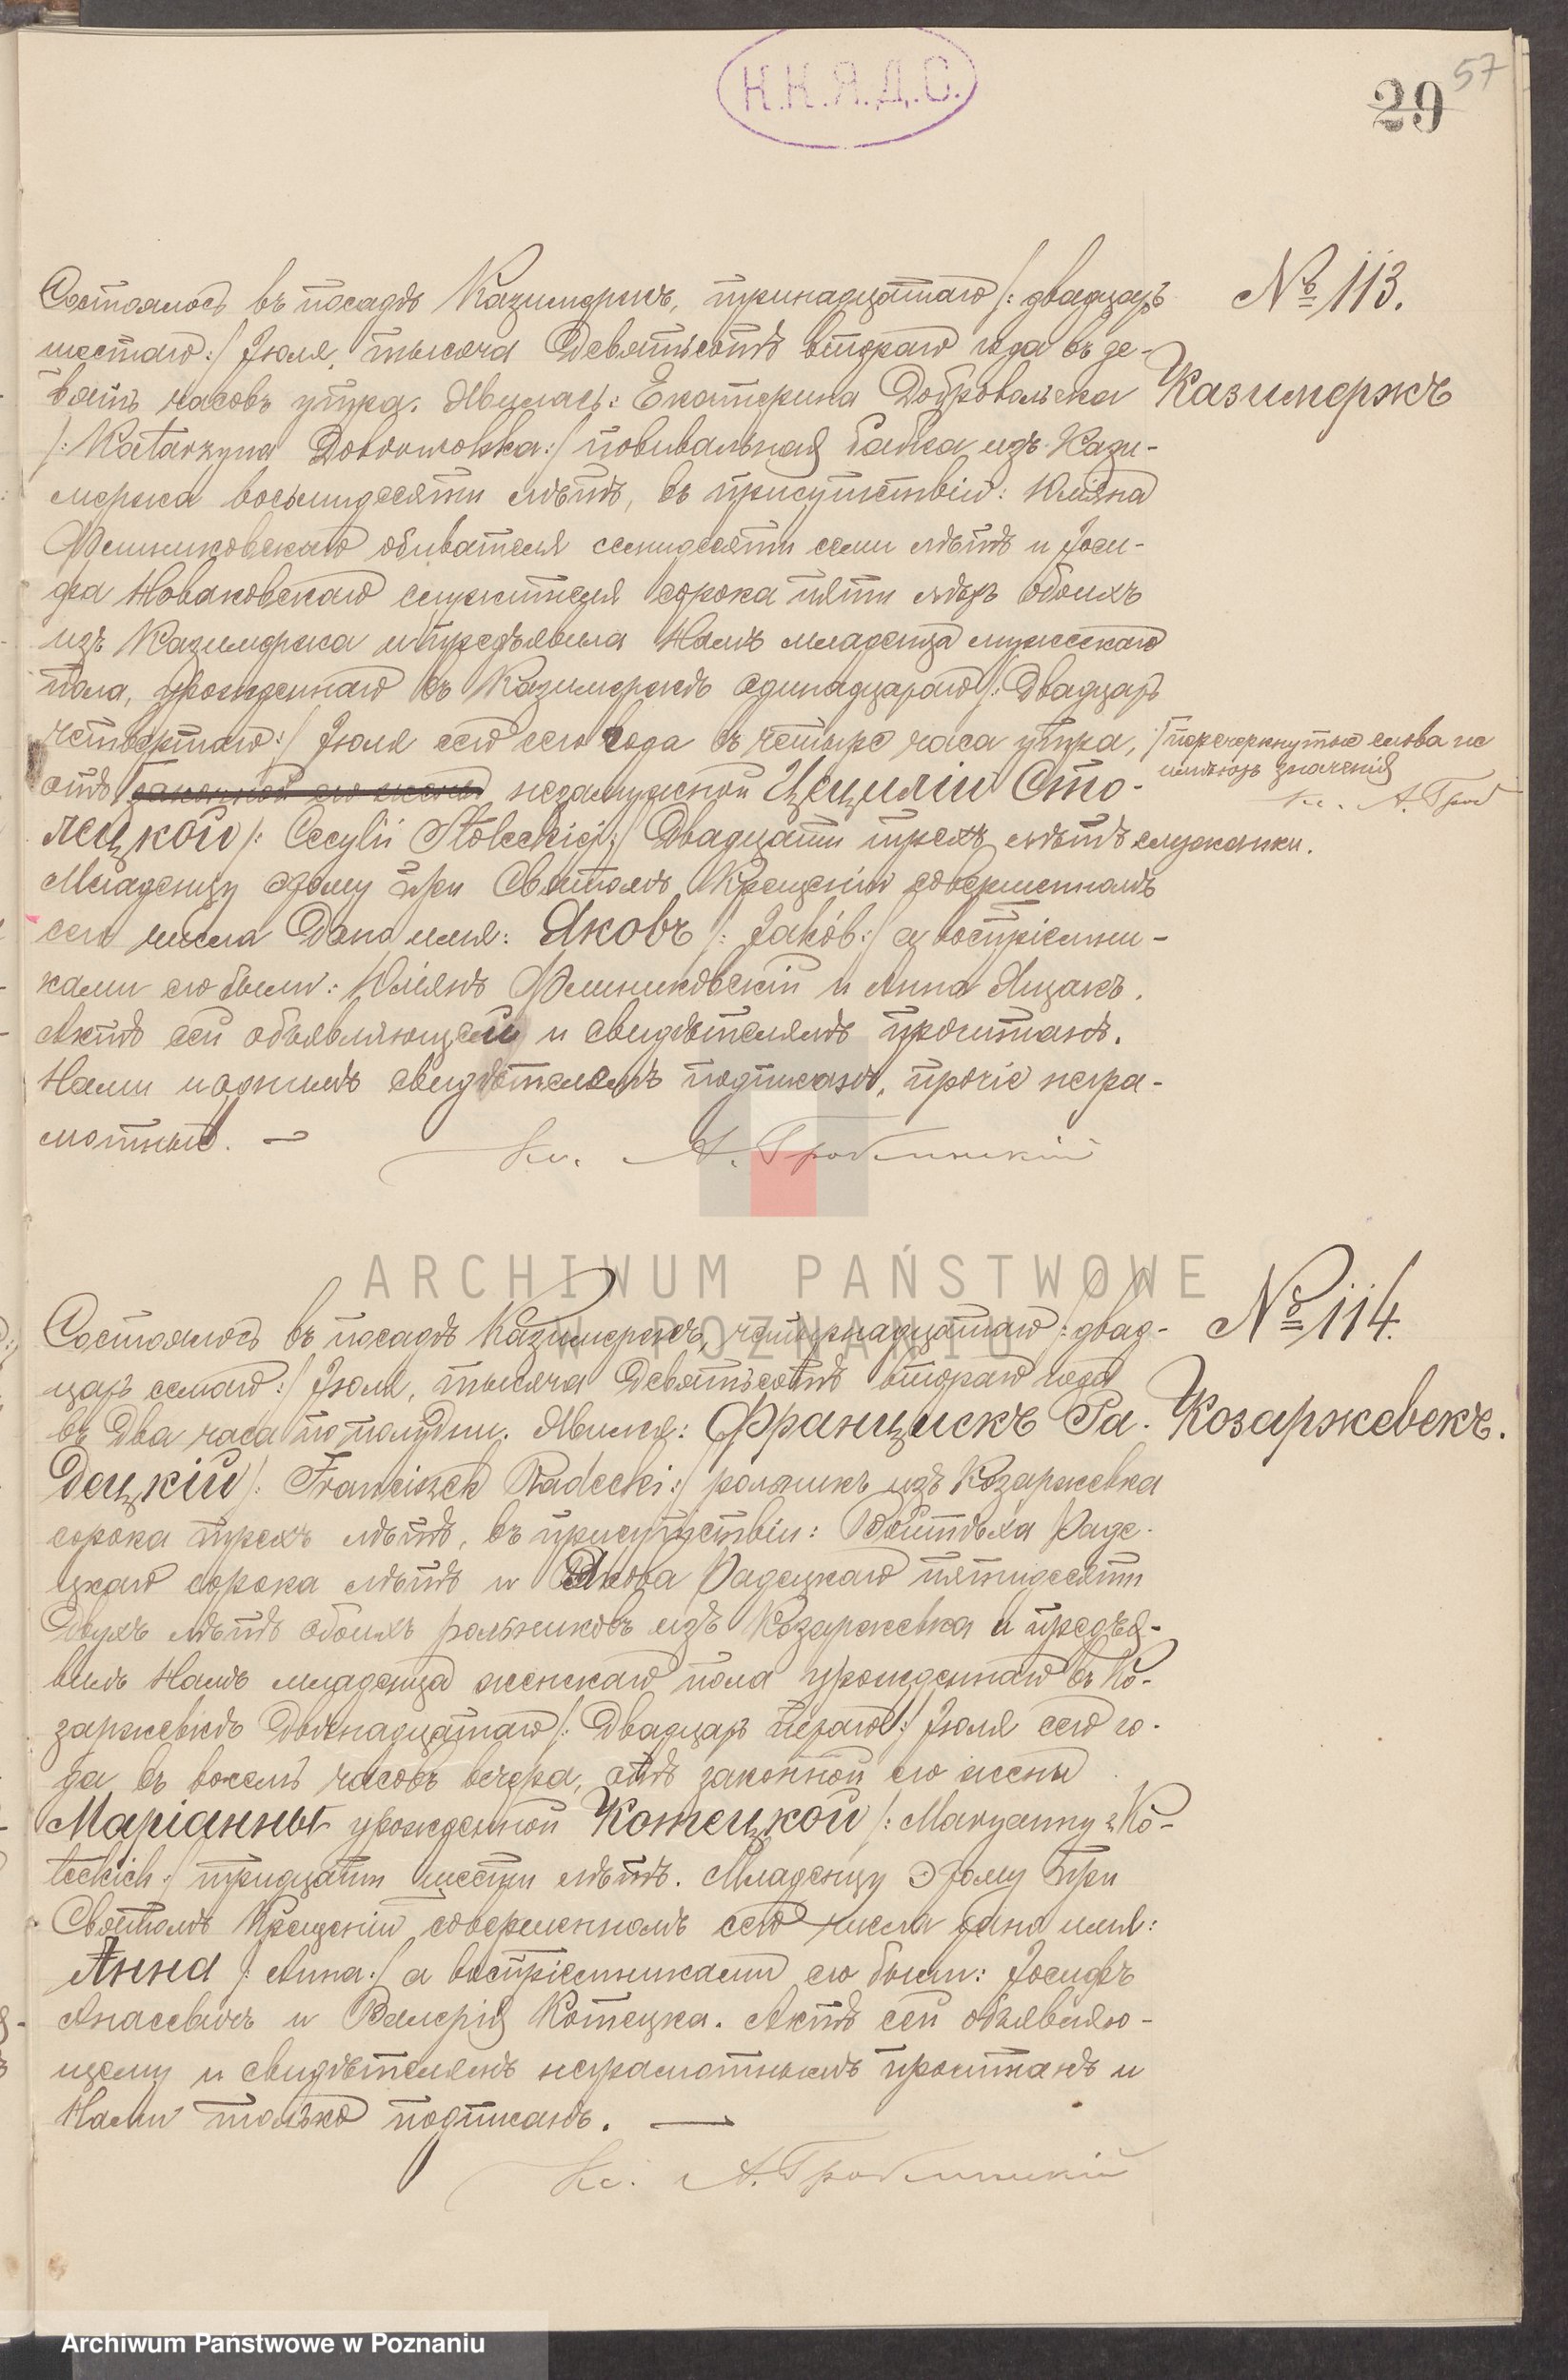 Н.Н.Я.Д.С.
57
29
Состоялось въ посадѣ Казимержѣ, тринадцатаго /: двадцать
шестаго :/ Іюля, тысяча девятьсотъ втораго года въ де-
вять часовъ утра. Явилась: Екатерина Добровольска
/: Katarzyna Dobrowolska :/ повивальная бабка изъ Кази-
мержа восьмидесяти лѣтъ, въ присутствіи: Юліяна
обывателя семидесяти семи лѣтъ и Іоси-
фа Новаковскаго служителя сорока пяти лѣтъ обоихъ
изъ Казимержа и предъявила Намъ младенца мужескаго
пола, урожденнаго въ Казимержѣ одинадцатаго /: двадцать
четвертаго :/ Іюля сего года въ четыре часа утра,
отъ законной его жены незамужной Цециліи Сто-
лецкой /: Cecylii Stoleckiej :/ двадцати трехъ лѣтъ служанки.
Младенцу этому при Святомъ Крещеніи совершенномъ
сего числа дано имя: Яковъ /: Jakób :/ а воспріемни-
ками его были: Юліянъ и Анна Яцакъ.
Актъ сей объявляющей и свидѣтелямъ прочитанъ.
Нами и однимъ свидѣтелемъ подписанъ, прочіе негра-
мотные. —
Кс. А. Гробълинскій
№ 113.
Казимержъ
/ перечеркнутые слова не
имѣютъ значенія
Кс. А. Гроб
ARCHIWUM PAŃSTWOWE
W POZNANIU
Состоялось въ посадѣ Казимержѣ, четырнадцатаго /: двад-
цать седмаго :/ Іюля, тысяча девятьсотъ втораго года
въ два часа по полудни. Явился: Францискъ Ра-
децкій /: Franciszek Radecki :/ рольникъ изъ Козаржевка
сорока трехъ лѣтъ, въ присутствіи: Войтѣха Раде-
цкаго сорока лѣтъ и Якова Радецкаго пятидесяти
двухъ лѣтъ обоихъ рольниковъ изъ Козаржевка и предъя-
вилъ Намъ младенца женскаго пола урожденнаго въ Ко-
заржевкѣ двѣнадцатаго /: двадцать :/ Іюля сего го-
да въ восемь часовъ вечера, отъ законной его жены
Маріанны урожденной Котецкой /: Maryanny z Ko-
teckich :/ тридцати шести лѣтъ. Младенцу этому при
Святомъ Крещеніи совершенномъ сего числа дано имя:
Анна /: Anna :/ а воспріемниками его были: Іосифъ
и Валерія Котецка. Актъ сей объявляю-
щему и свидѣтелямъ неграмотнымъ прочитанъ и
Нами только подписанъ. —
Кс. А. Гробълинскій
№ 114.
Козаржевекъ.
Archiwum Państwowe w Poznaniu